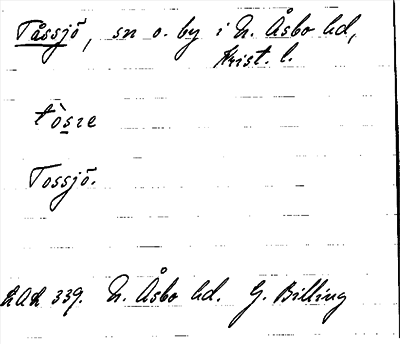 Tåssjö, sn o. by i N. Åsbo hd,
Krist. l.
tòsɪe
Tossjö.
LAL 339. N. Åsbo hd. G. Billing